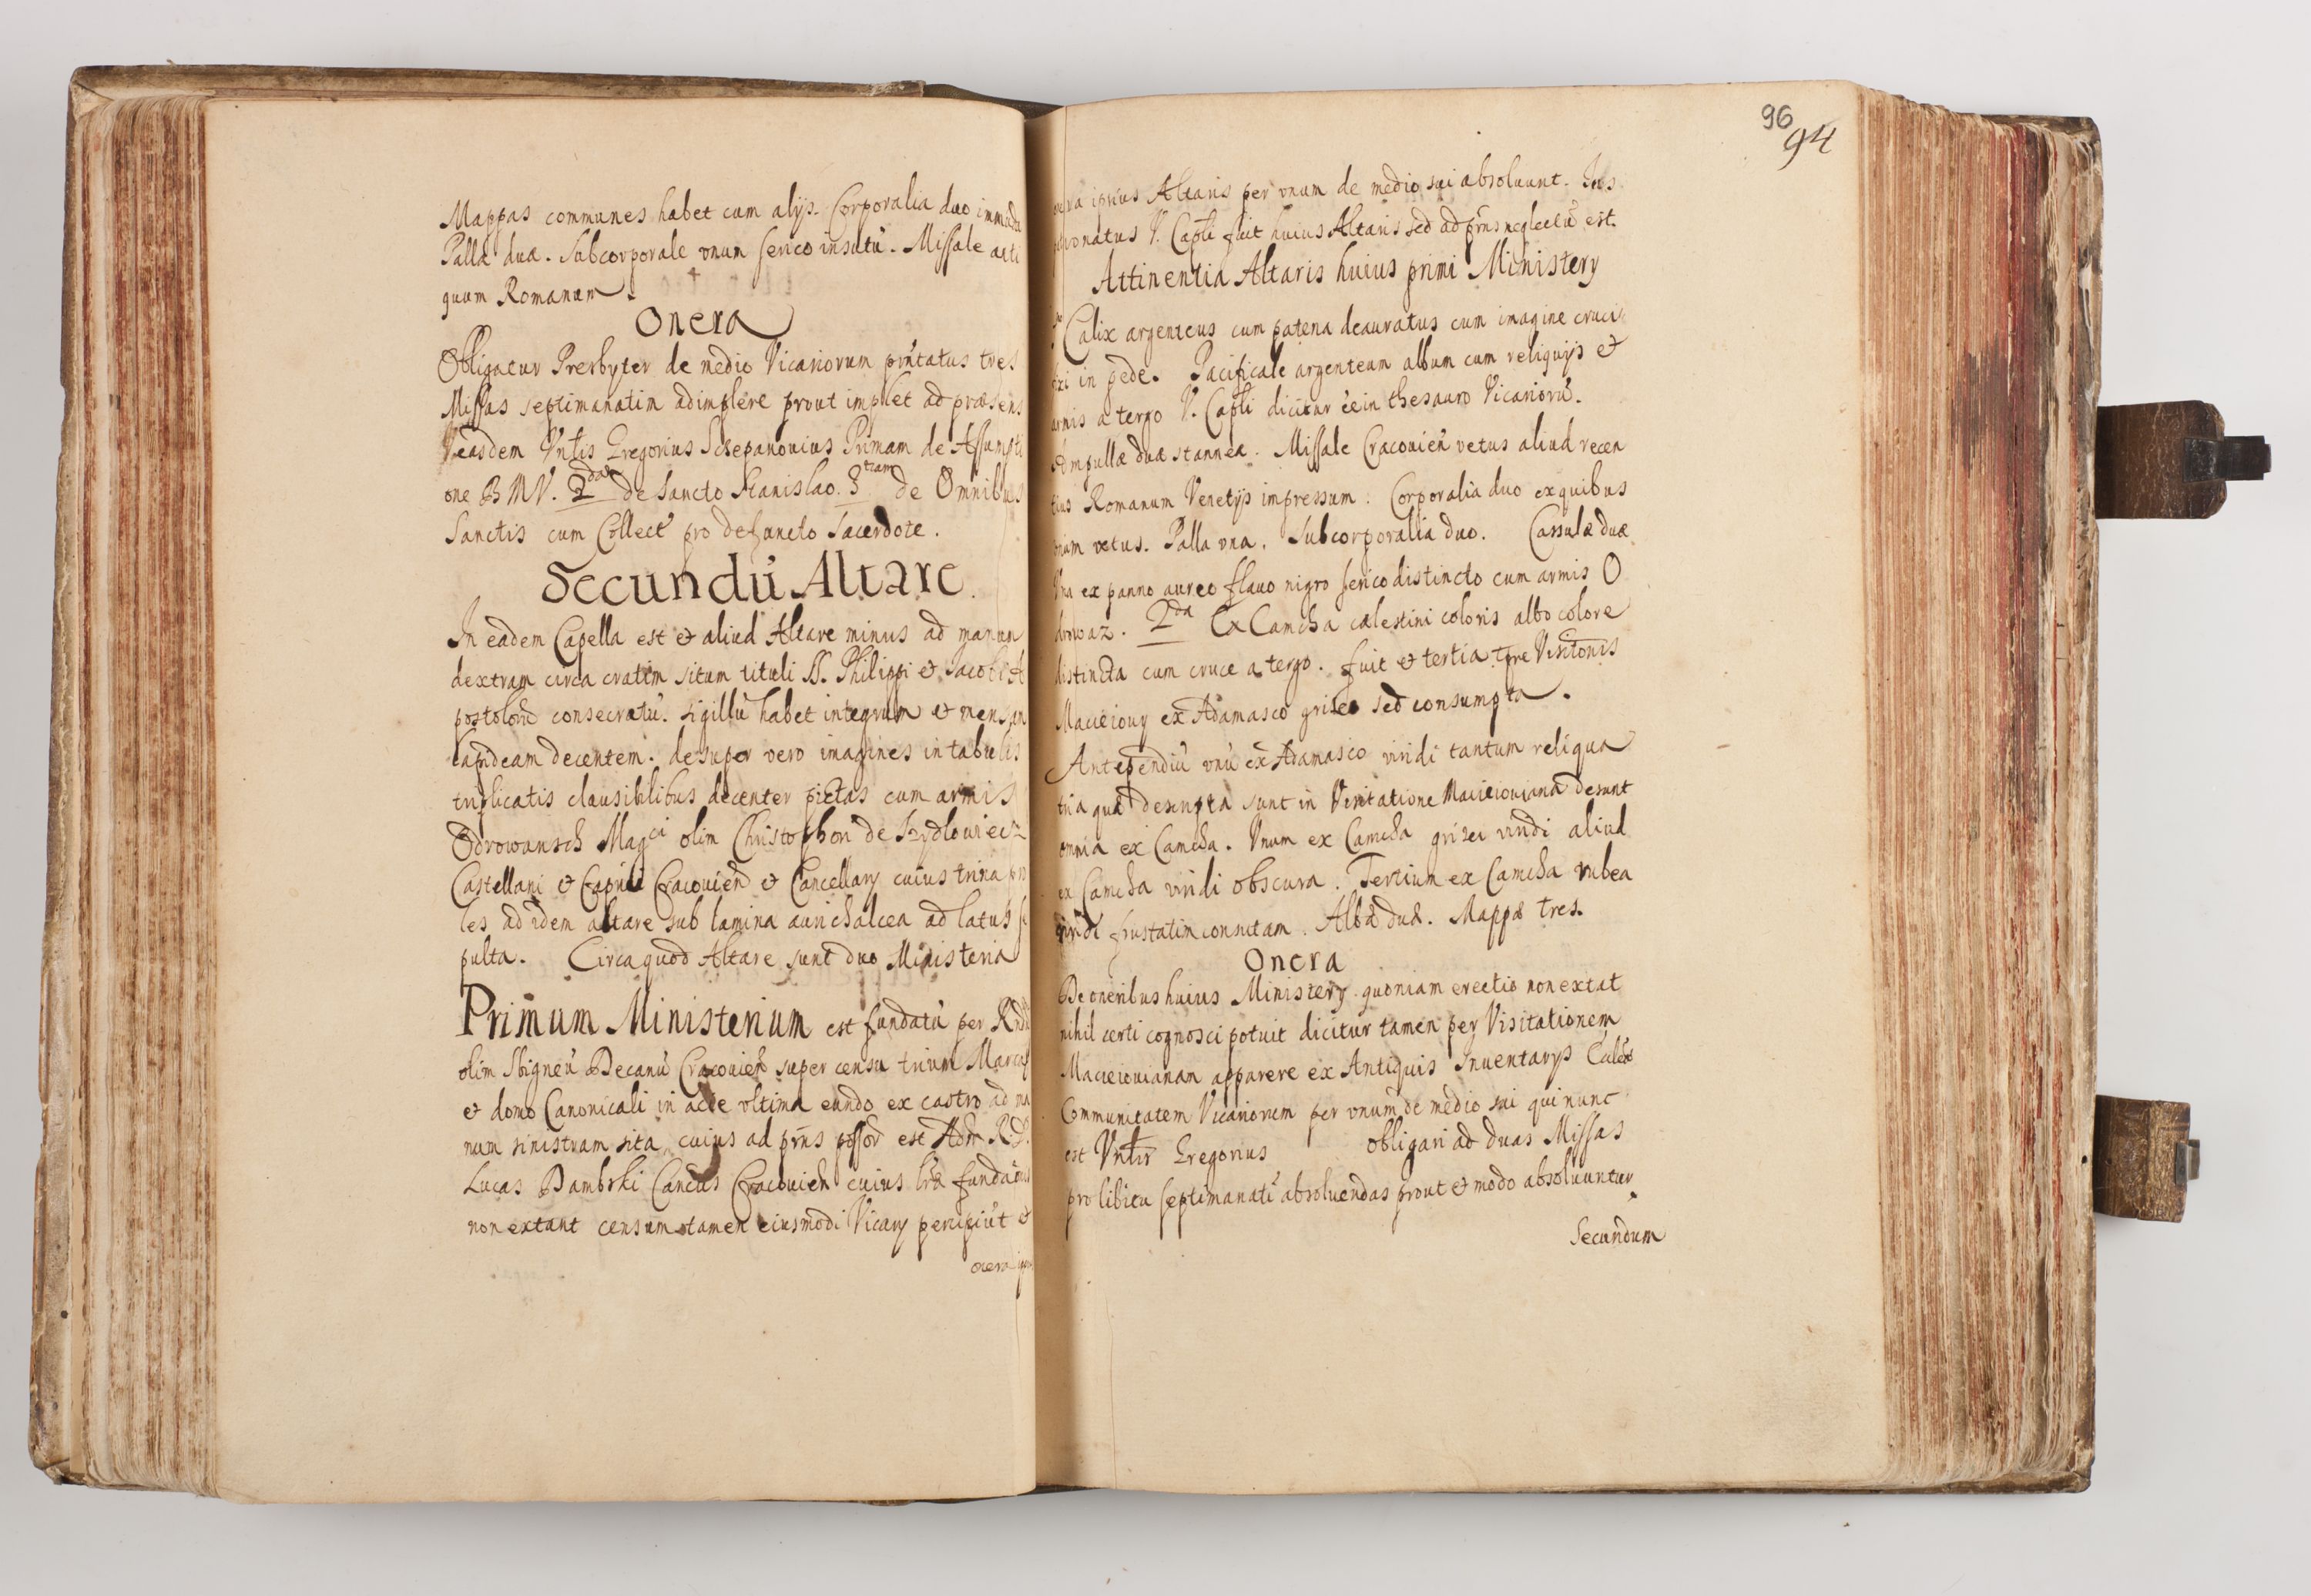 Mappas communes habet cum alijs. Corporalia duo immunda
Pallæ duæ. Subcorporale vnum serico insutũ. Missale anti
quum Romanum.
Onera
Obligatur Presbyter de medio Vicariorum pñtatus tres
Missas septimanatim adimplere prout implet ad præsens
easdem Vnlis Gregorius Sczepanouius Primam de Assumpti
one B M V. 2da de Sancto Stanislao. 3tiam de Omnibus
Sanctis cum Collect' pro defuncto Sacerdote.
Secundũ Altare.
In eadem Capella est et aliud Altare minus ad manum
dextram circa cratem situm tituli SS. Philippi et Jacobi A
postolorũ consecratũ. sigillũ habet integrum et mensam
lapideam decentem. desuper vero imagines in tabulis
triplicatis clausibilibus decenter pictas cum armis
Odrowansch Magci olim Christophori de Szydlowiecz
Castellani et Capnei Cracouien̄ et Cancellarij cuius trina pro
les ad idem altare sub lamina aurichalcea ad latus se
pulta. Circa quod Altare sunt duo Ministeria
Primum Ministerium est fundatũ per Rndũ
olim Sbigneũ Decanũ Cracouien̄ super censu trium Marcaȝ
et domo Canonicali in acie vltima eundo ex castro ad ma
num sinistram sita, cuius ad pñs possor est Adm R.D.
Lucas Dambski Cancus Cracouien̄ cuius lræ fundãnis
non extant censum tamen eiusmodi Vicarij percipiũt et
onera ipsius
onera ipsius Altaris per vnum de medio sui absoluunt. Jus
patronatus V. Capli fuit huius Altaris sed ad pñs neglectũ est.
Attinentia Altaris huius primi Ministerij
Calix argenteus cum patena deauratus cum imagine cruci
fixi in pede. Pacificale argenteum album cum reliquijs et
armis a tergo V. Capli dicitur ẽe in thesauro Vicariorũ.
Ampullæ duæ stanneæ. Missale Cracouien̄ vetus aliud recen
tius Romanum Venetijs impressum. Corporalia duo ex quibus
vnum vetus. Palla vna. Subcorporalia duo. Cassulæ duæ
Vna ex panno aureo flauo nigro serico distincto cum armis O
drowaz. 2da Ex Camcha cælestini coloris albo colore
distincta cum cruce a tergo. fuit et tertia tpre Visitonis
Macieiouij ex Adamasco griseo sed consumpta.
Antependiũ vnũ ex Adamasco viridi tantum reliqua
tria quæ descripta sunt in Visitatione Macieiouiana desunt
omnia ex Camcha. Vnum ex Camcha grisea viridi aliud
ex Camcha viridi obscura. Tertium ex Camcha rubea
viridi frustatim consutam. Albæ duæ. Mappæ tres.
Onera
De oneribus huius Ministerij quoniam erectio non extat
nihil certi cognosci potuit dicitur tamen per Visitationem
Macieiouianam apparere ex Antiquis Inuentarijs
Communitatem Vicariorum per vnum de medio sui qui nunc
est Vnlis Gregorius obligari ad duas Missas
pro libitu septimanatĩ absoluendas prout et modo absoluuntur.
Secundum
96
94